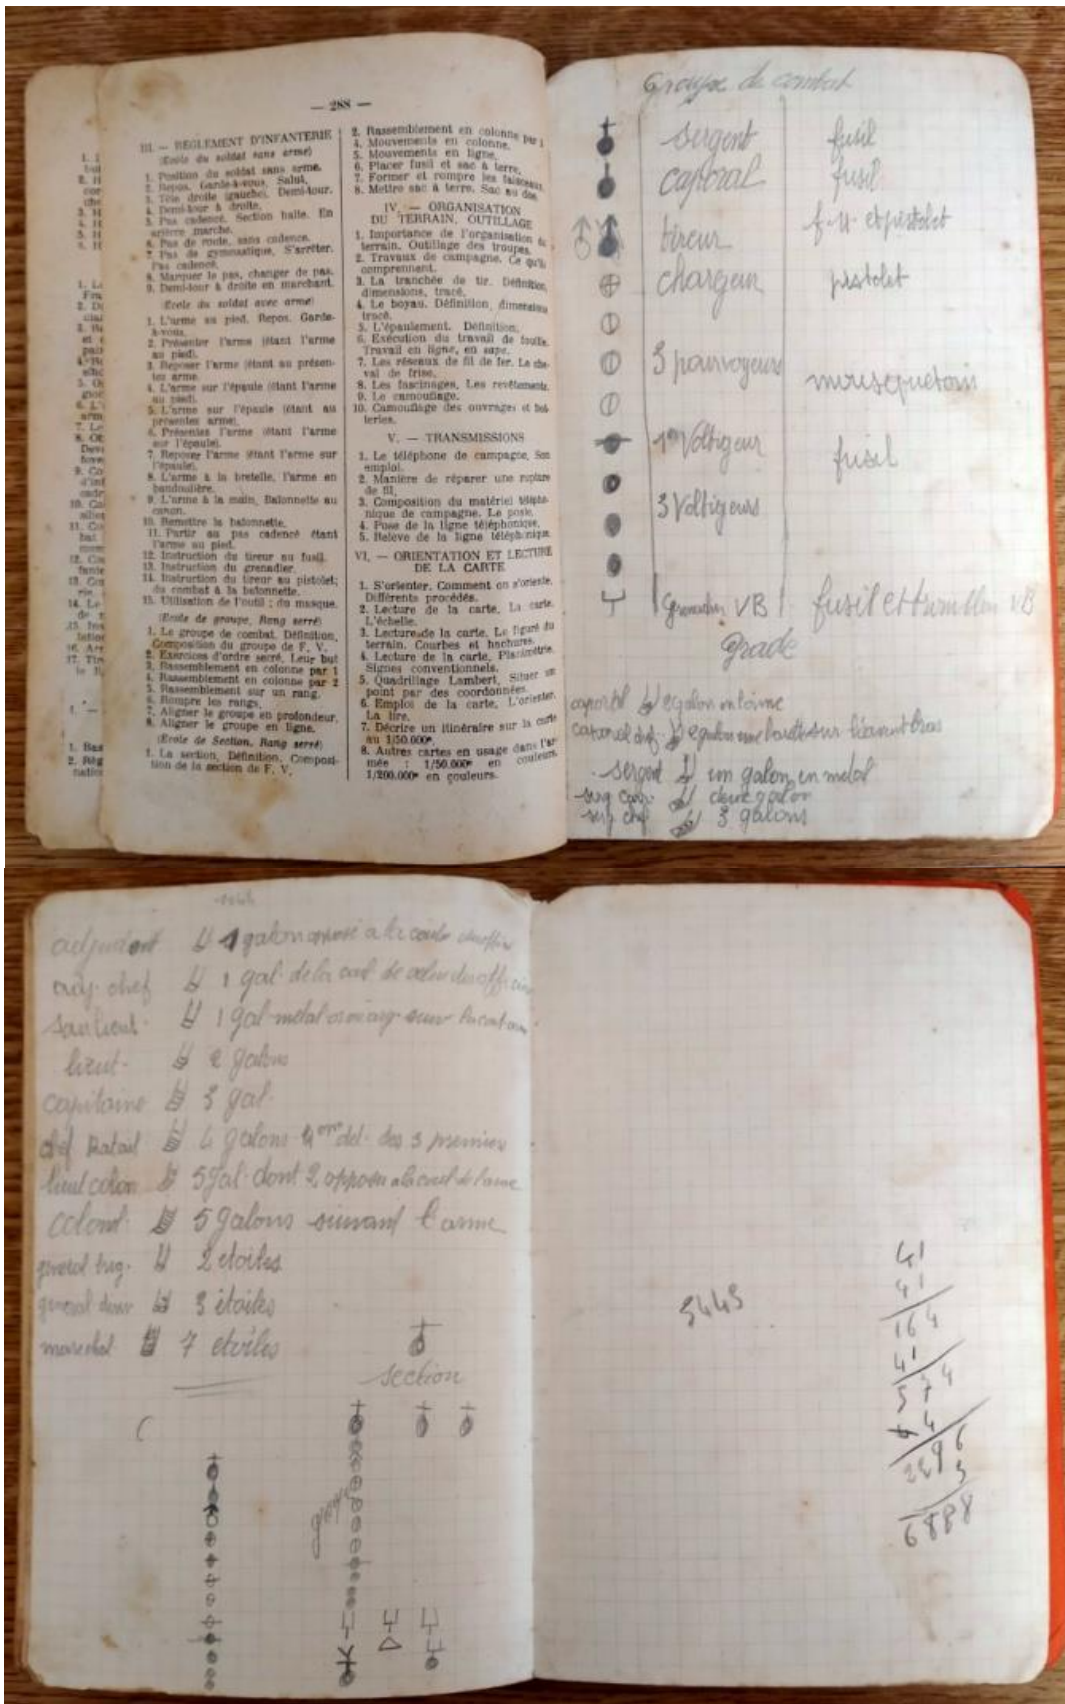 — 288 —
III. — RÈGLEMENT D'INFANTERIE
(Ecole du soldat sans arme)
1. Position du soldat sans arme.
2. Repos. Garde-à-vous. Salut.
3. Tête droite (gauche). Demi-tour.
4. Demi-tour à droite.
5. Pas cadencé. Section halte. En
arrière marche.
6. Pas de route, sans cadence.
7. Pas de gymnastique. S'arrêter.
Pas cadencé.
8. Marquer le pas, changer de pas.
9. Demi-tour à droite en marchant.
(Ecole du soldat avec arme)
1. L'arme au pied. Repos. Garde-
à-vous.
2. Présenter l'arme (étant l'arme
au pied).
3. Reposer l'arme (étant au présen-
tez arme).
4. L'arme sur l'épaule (étant l'arme
au pied).
5. L'arme sur l'épaule (étant au
présentez arme).
6. Présentez l'arme (étant l'arme
sur l'épaule).
7. Reposer l'arme (étant l'arme sur
l'épaule).
8. L'arme à la bretelle, l'arme en
bandoulière.
9. L'arme à la main, Baïonnette au
canon.
10. Remettre la baïonnette.
11. Partir au pas cadencé étant
l'arme au pied.
12. Instruction du tireur au fusil.
13. Instruction du grenadier.
14. Instruction du tireur au pistolet;
du combat à la baïonnette.
15. Utilisation de l'outil; du masque.
(Ecole de groupe, Rang serré)
1. Le groupe de combat. Définition.
Composition du groupe de F. V.
2. Exercices d'ordre serré. Leur but
3. Rassemblement en colonne par 1
4. Rassemblement en colonne par 2
5. Rassemblement sur un rang.
6. Rompre les rangs.
7. Aligner le groupe en profondeur.
8. Aligner le groupe en ligne.
(Ecole de Section, Rang serré)
1. La section, Définition, Composi-
tion de la section de F. V.
2. Rassemblement en colonne par 1
4. Mouvements en colonne.
5. Mouvements en ligne.
6. Placer fusil et sac à terre.
7. Former et rompre les faisceaux.
8. Mettre sac à terre. Sac au dos.
IV. — ORGANISATION
DU TERRAIN, OUTILLAGE
1. Importance de l'organisation du
terrain. Outillage des troupes.
2. Travaux de campagne. Ce qu'ils
comprennent.
3. La tranchée de tir. Définition,
dimensions, tracé.
4. Le boyau. Définition, dimensions
tracé.
5. L'épaulement. Définition.
6. Exécution du travail de fouille.
Travail en ligne, en sape.
7. Les réseaux de fil de fer. Le che-
val de frise.
8. Les fascinages, Les revêtements.
9. Le camouflage.
10. Camouflage des ouvrages et bat-
teries.
V. — TRANSMISSIONS
1. Le téléphone de campagne, Son
emploi.
2. Manière de réparer une rupture
de fil.
3. Composition du matériel télépho-
nique de campagne. Le poste.
4. Pose de la ligne téléphonique.
5. Relève de la ligne téléphonique.
VI. — ORIENTATION ET LECTURE
DE LA CARTE
1. S'orienter. Comment on s'oriente.
Différents procédés.
2. Lecture de la carte. La carte.
L'échelle.
3. Lecture de la carte. Le figuré du
terrain. Courbes et hachures.
4. Lecture de la carte, Planimétrie.
Signes conventionnels.
5. Quadrillage Lambert, Situer un
point par des coordonnées.
6. Emploi de la carte. L'orienter.
La lire.
7. Décrire un itinéraire sur la carte
au 1/50.000e.
8. Autres cartes en usage dans l'ar-
mée : 1/50.000e en couleurs.
1/200.000e en couleurs.
Groupe de combat
sergent fusil
caporal fusil
tireur f-m et pistolet
chargeur pistolet
3 pourvoyeurs mousqueton
1er Voltigeur fusil
3 Voltigeurs
Grenadier VB fusil et tromblon VB
Grade
caporal galon en laine
caporal chef
sergent un galon en metal
deux galon
3 galons
adjudant 1 galon
adj. chef 1 gal.
sous lieut. 1 gal metal
lieut. 2 galons
capitaine 3 gal.
chef Batail 4 galons des 3 premiers
lieut colon 5 gal. dont 2
colonel 5 galons suivant l'arme
general brig. 2 etoiles
general divis 3 étoiles
marechal 7 etoiles
section
groupe
5445
41
41
164
41
574
4
2296
3
6888